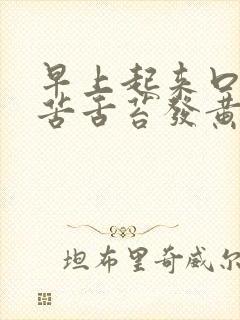 早上起来口
苦舌苔發黄
坦布里奇威尔